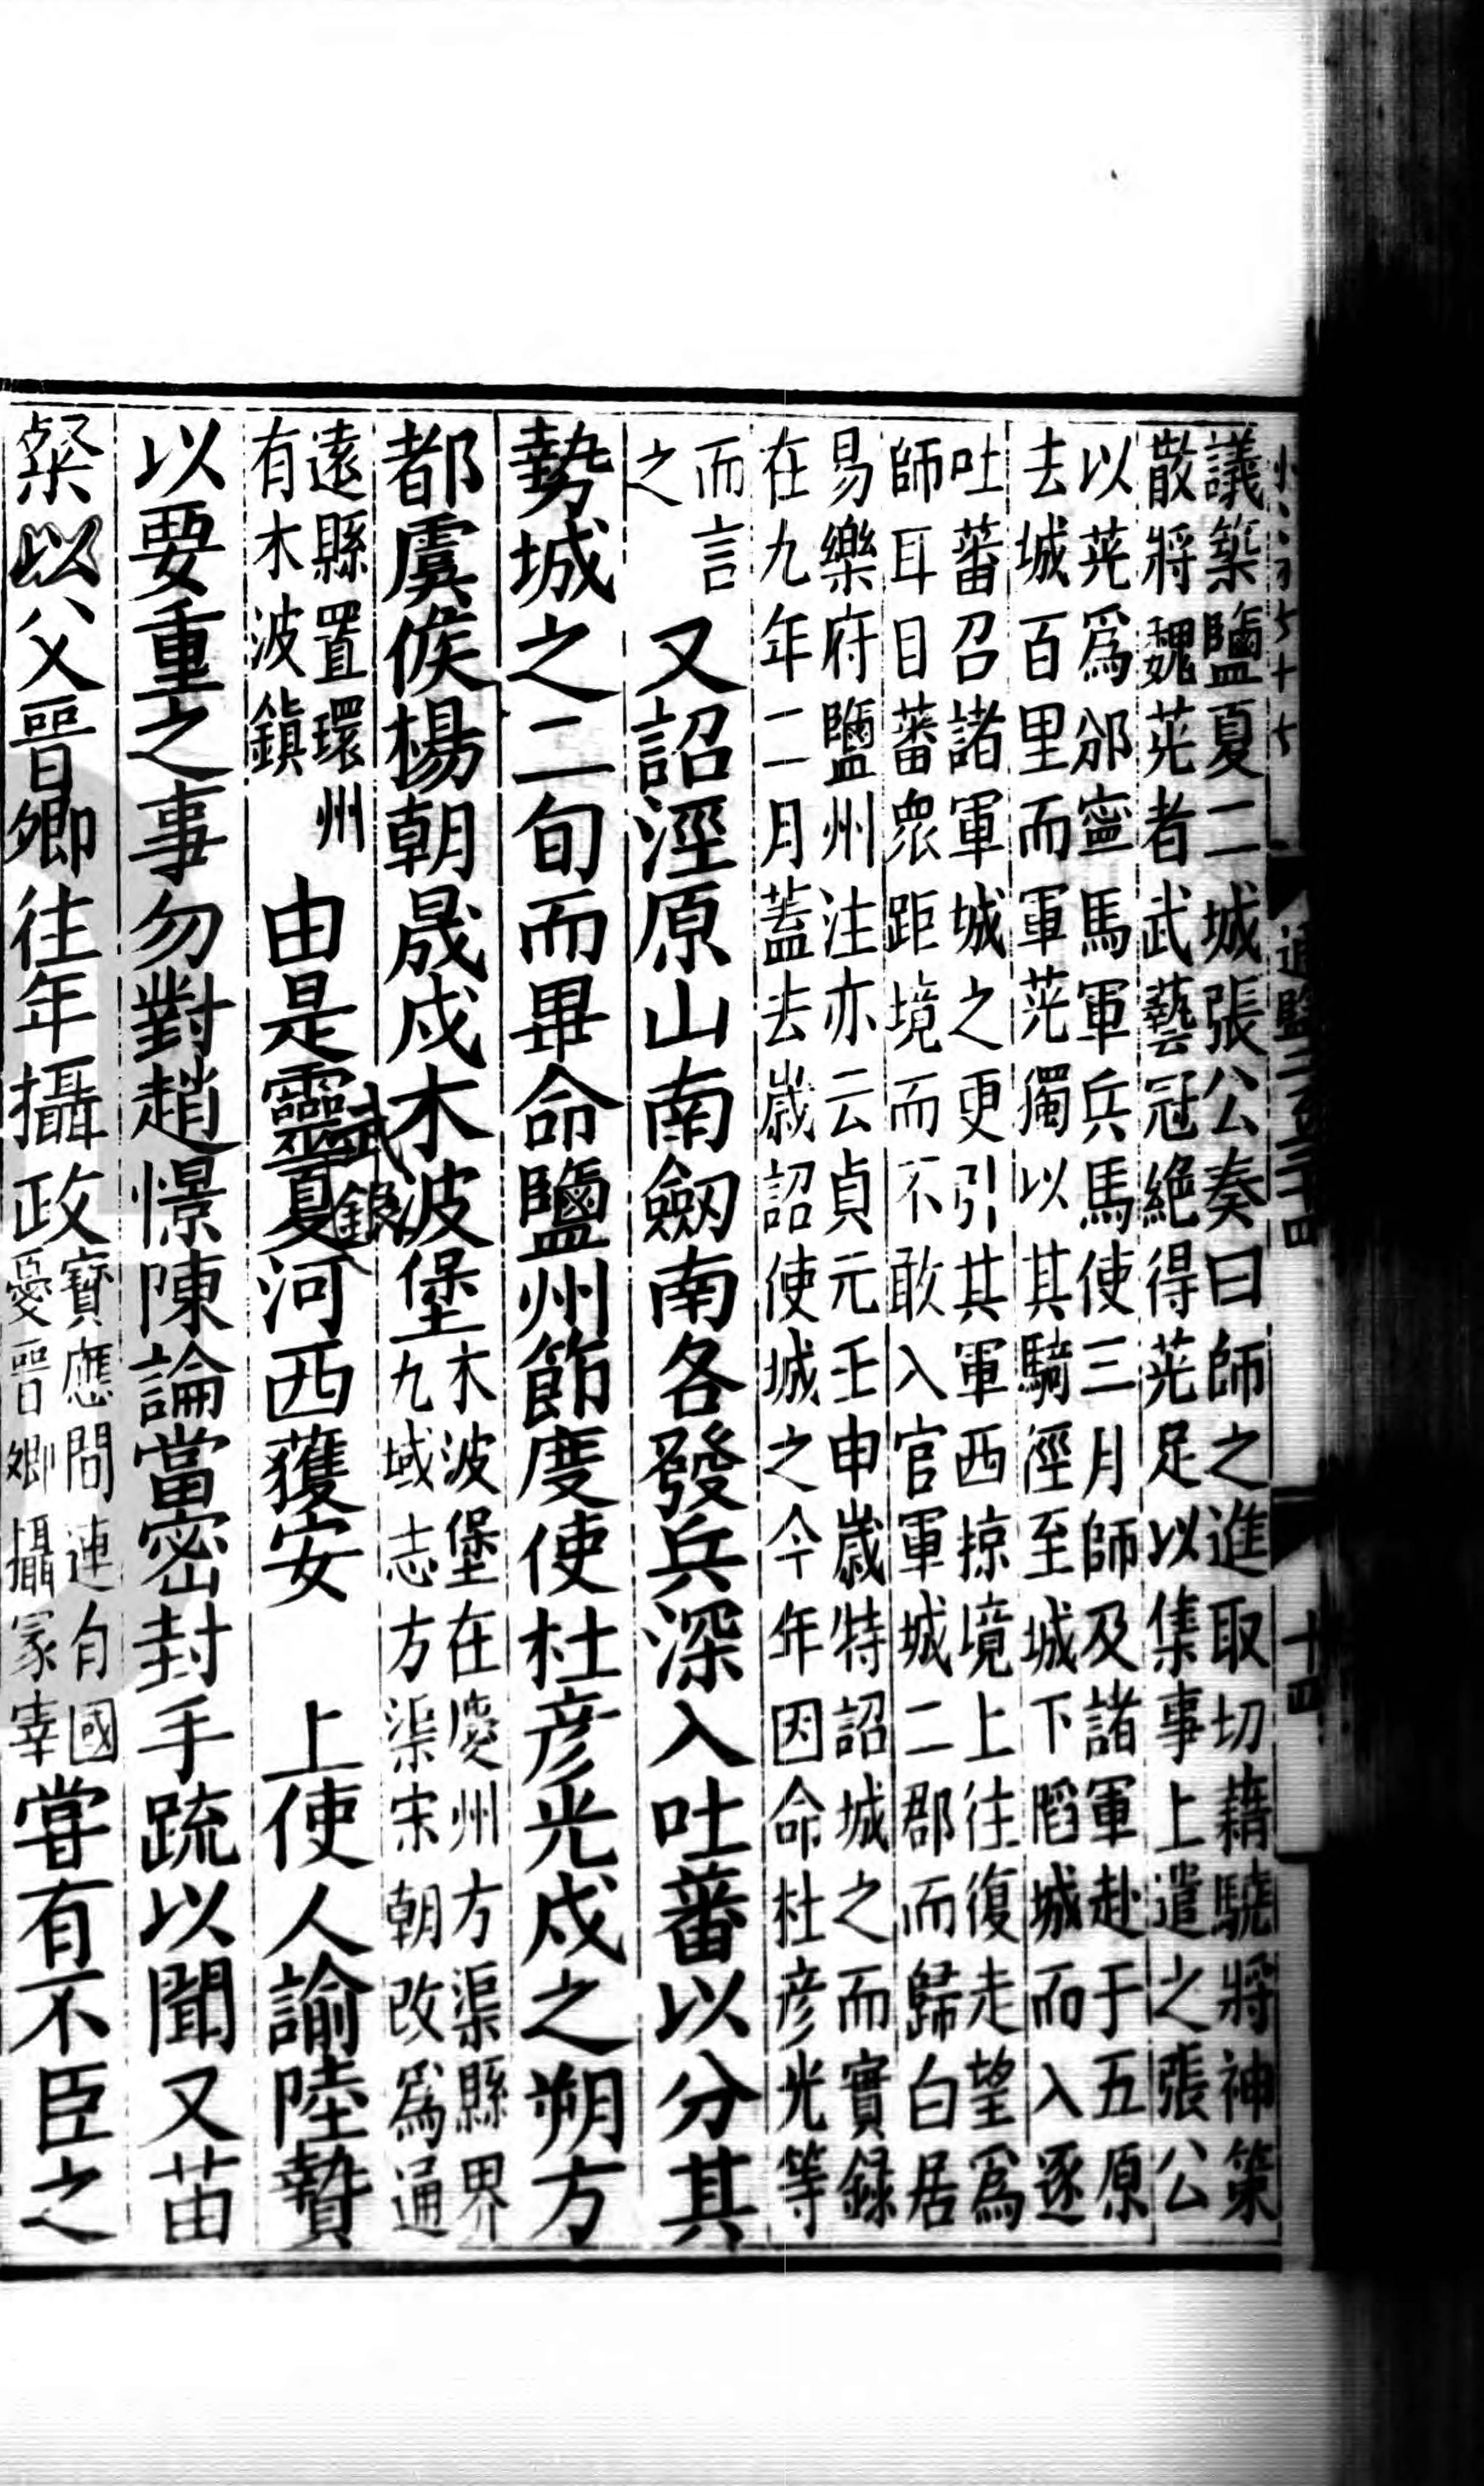 議築鹽夏二城張公奏曰師之進取切藉驍將神策
散將魏茪者武藝冠絶得茪足以集事上遣之張公
以茪爲邠寧馬軍兵馬使三月師及諸軍赴于五原
去城百里而軍茪獨以其騎徑至城下䧟城而入逐
吐蕃召諸軍城之更引其軍西掠境上往復走望爲
師耳目蕃衆距境而不敢入官軍城二郡而歸白居
易樂府鹽州注亦云貞元壬申歲特詔城之而實録
在九年二月蓋去歲詔使城之今年因命杜彦光等
而言
之
又詔涇原山南劒南各發兵深入吐蕃以分其
勢城之二旬而畢命鹽州節度使杜彦光戍之朔方
都虞候楊朝晟戍木波堡
木波堡在慶州方渠縣界
九域志方渠宋朝改爲通
遠縣置環州
有木波鎮
由是靈夏河西獲安 上使人諭陸贄
以要重之事勿對趙憬陳論當密封手疏以聞又苗
粲以父晉卿往年攝政
寶應間連有國
憂晉卿攝冡宰
嘗有不臣之
通鑑二百三十四
十四